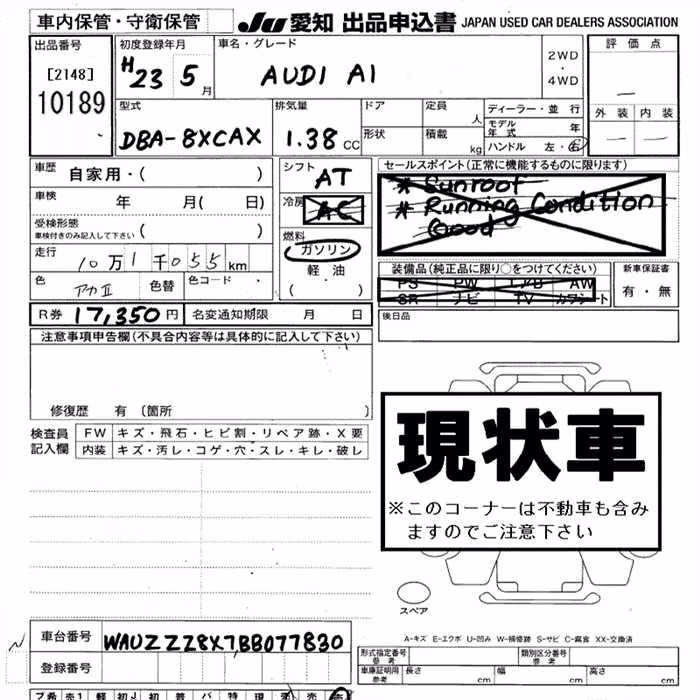 車内保管・守衛保管
JU 愛知 出品申込書 JAPAN USED CAR DEALERS ASSOCIATION
出品番号
[2148]
10189
初度登録年月
H 23 5 月
車名・グレード
AUDI A1
2WD
・
4WD
評価点
―
外装 内装
― ―
型式
DBA-8XCAX
排気量
1.38 CC
ドア
形状
定員 人
積載 kg
ディーラー・並行
モデル年式 年
ハンドル 左・右
車歴 自家用・( )
車検 年 月( 日)
受検形態
車検付きのみ記入して下さい ( )
走行 10万1千055km
色 アカII 色替 色コード
シフト
AT
冷房 AC
燃料
ガソリン
軽・油
( )
セールスポイント(正常に機能するものに限ります)
* Sunroof
* Running Condition
Good
装備品(純正品に限り○をつけてください)
PS PW エアB AW
SR ナビ TV カワシート
新車保証書
有・無
R券 17,350円 名変通知期限 月 日
後日品
注意事項申告欄(不具合内容等は具体的に記入して下さい)
修復歴 有 (箇所 )
検査員
記入欄
FW キズ・飛石・ヒビ割・リペア跡・X要
内装 キズ・汚レ・コゲ・穴・スレ・キレ・破レ
現状車
※このコーナーは不動車も含み
ますのでご注意下さい
スペア
A-キズ E-エクボ U-凹み W-補修跡 S-サビ C-腐食 XX-交換済
車台番号 WAUZZZ8X7BB077830
登録番号
形式指定番号
参考
類別区分番号
参考
車庫証明用
参考
長さ cm 幅 cm 高さ cm